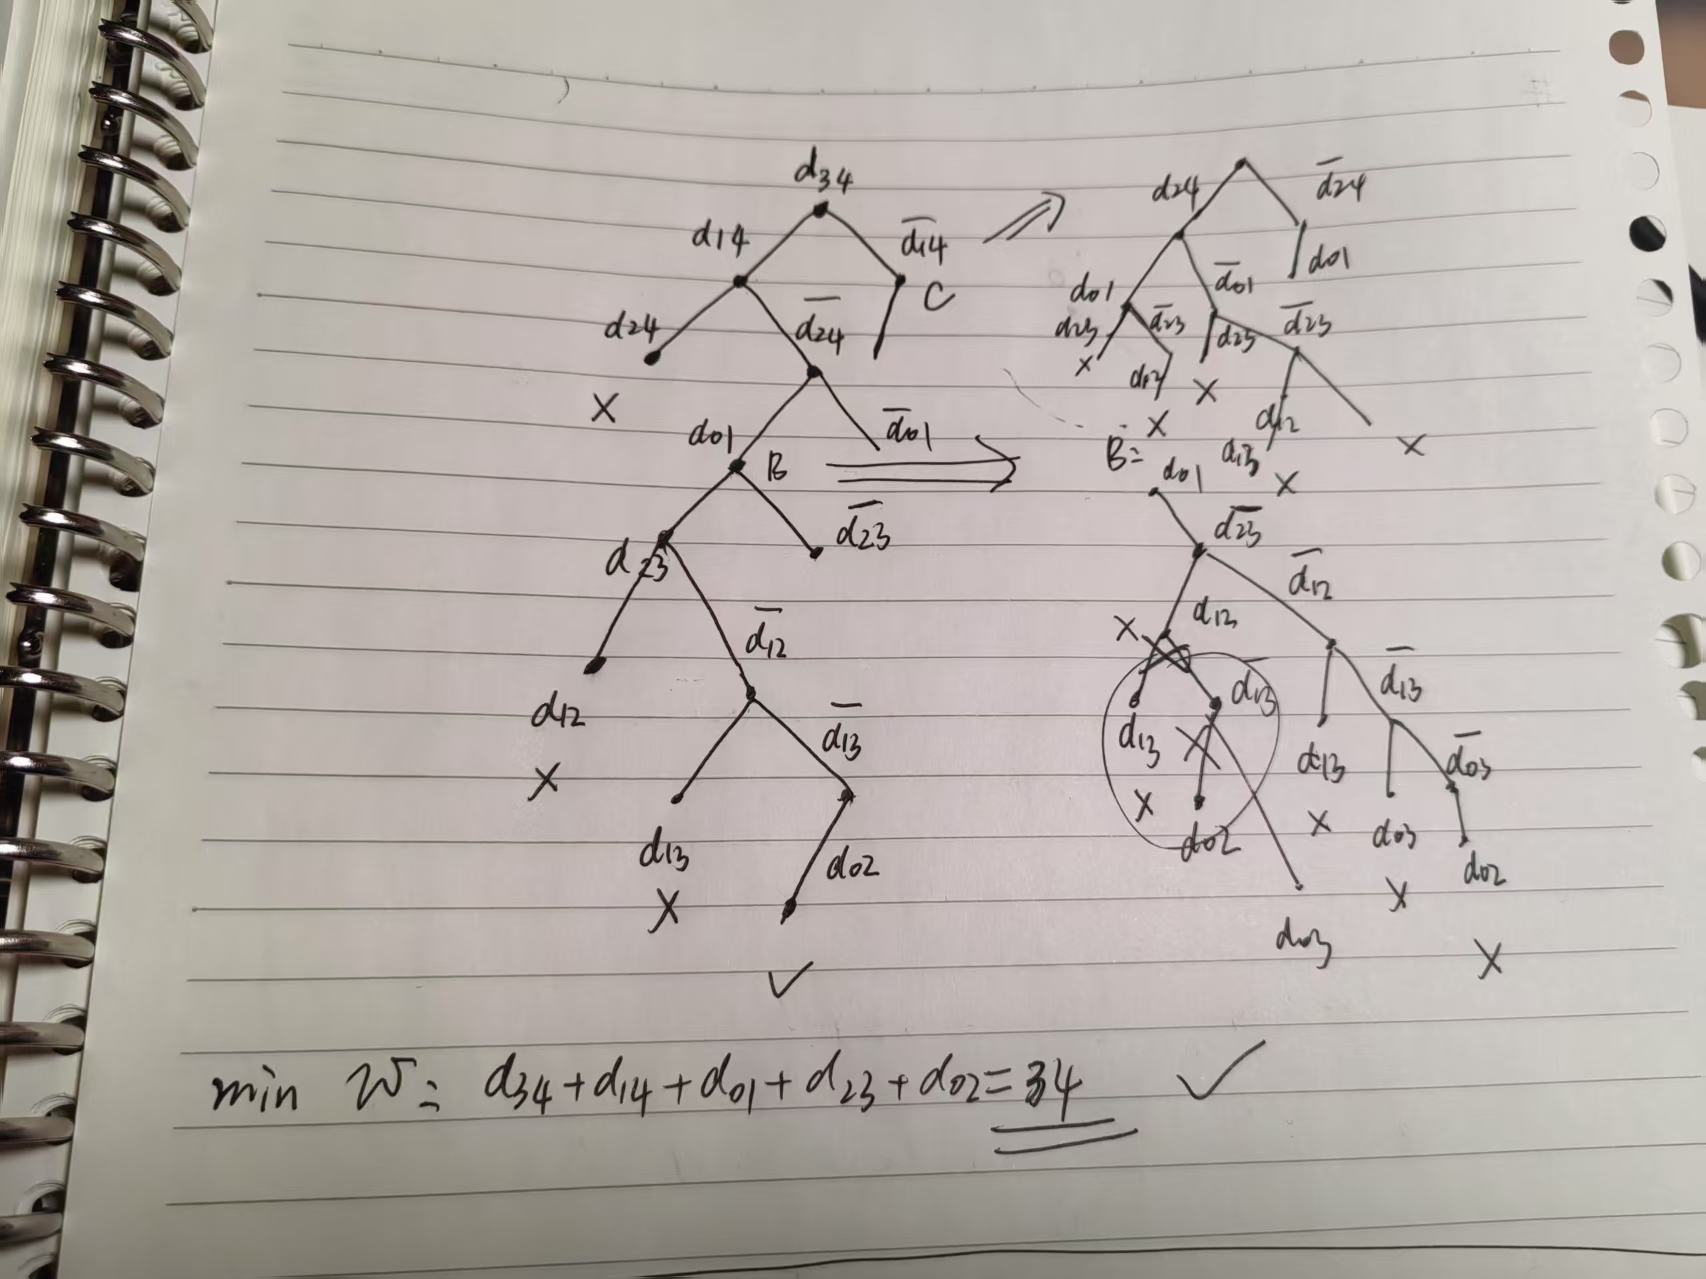 d34
d14
d̅14
d24
d̅24
C
X
d01
d̅01
B
d23
d̅23
d12
d̅12
X
d13
d̅13
X
d02
✓
d24
d̅24
d01
d̅01
d01
d23
d̅23
d23
d̅23
X
d12
X
X
d12
d13
X
X
B=
d01
d̅23
d12
d̅12
X
d13
d̅13
d13
d̅13
X
d02
X
d03
d̅03
X
d02
d03
X
min W= d34+d14+d01+d23+d02=34 ✓